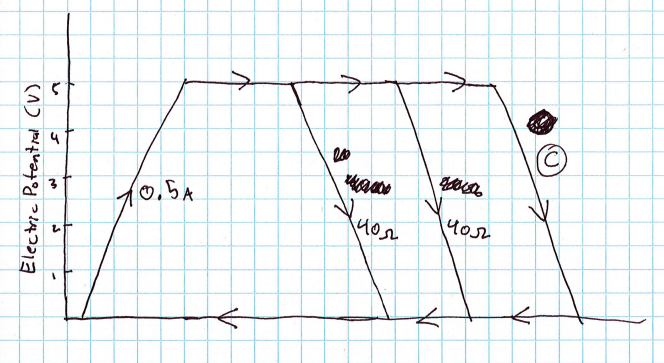 Electric Potential (V)
5
4
3
2
1
0.5A
40Ω
40Ω
C